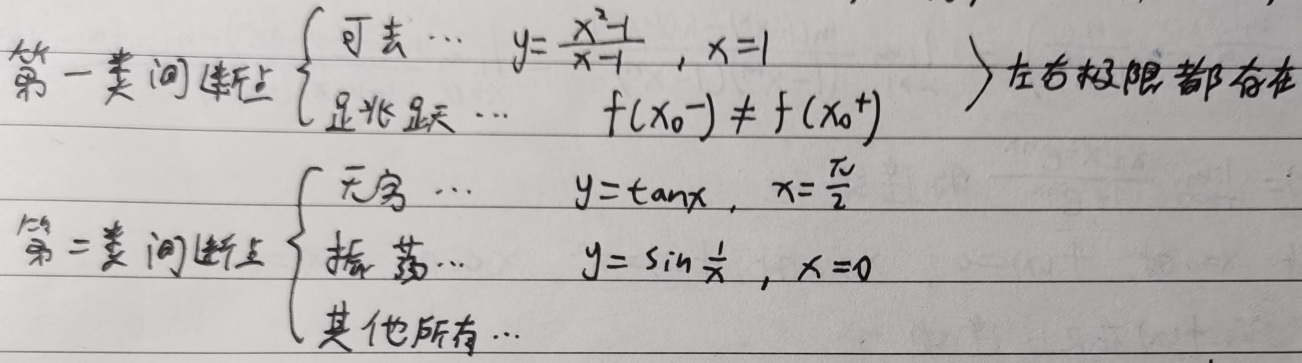 第一类间断点 { 可去… y=\frac{x²-1}{x-1}, x=1
跳跃… f(x₀⁻)≠f(x₀⁺) } 左右极限都存在
第二类间断点 { 无穷… y=tanx, x=\frac{π}{2}
振荡… y=sin\frac{1}{x}, x=0
其他所有…